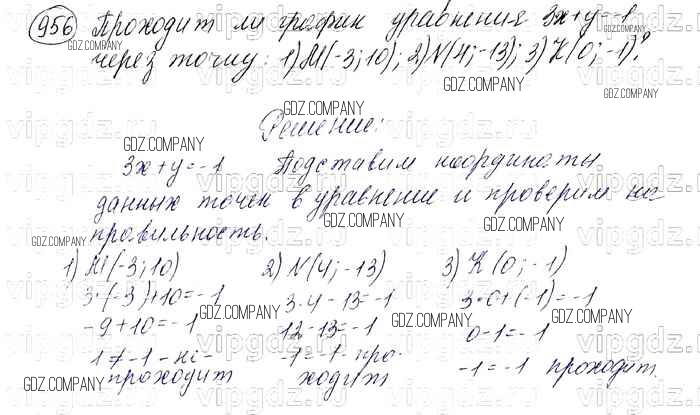 956 Проходит ли график уравнения 3x+y=-1
через точку: 1) M(-3;10); 2) N(4;-13); 3) K(0;-1)?
Решение:
3x+y=-1 Подставим координаты
данных точек в уравнение и проверим на
правильность.
1) M(-3;10) 2) N(4;-13) 3) K(0;-1)
3·(-3)+10=-1 3·4-13=-1 3·0+(-1)=-1
-9+10=-1 12-13=-1 0-1=-1
1≠-1-не- -1=-1-про- -1=-1 проходит.
проходит ходит
GDZ.COMPANY
vipgdz.ru